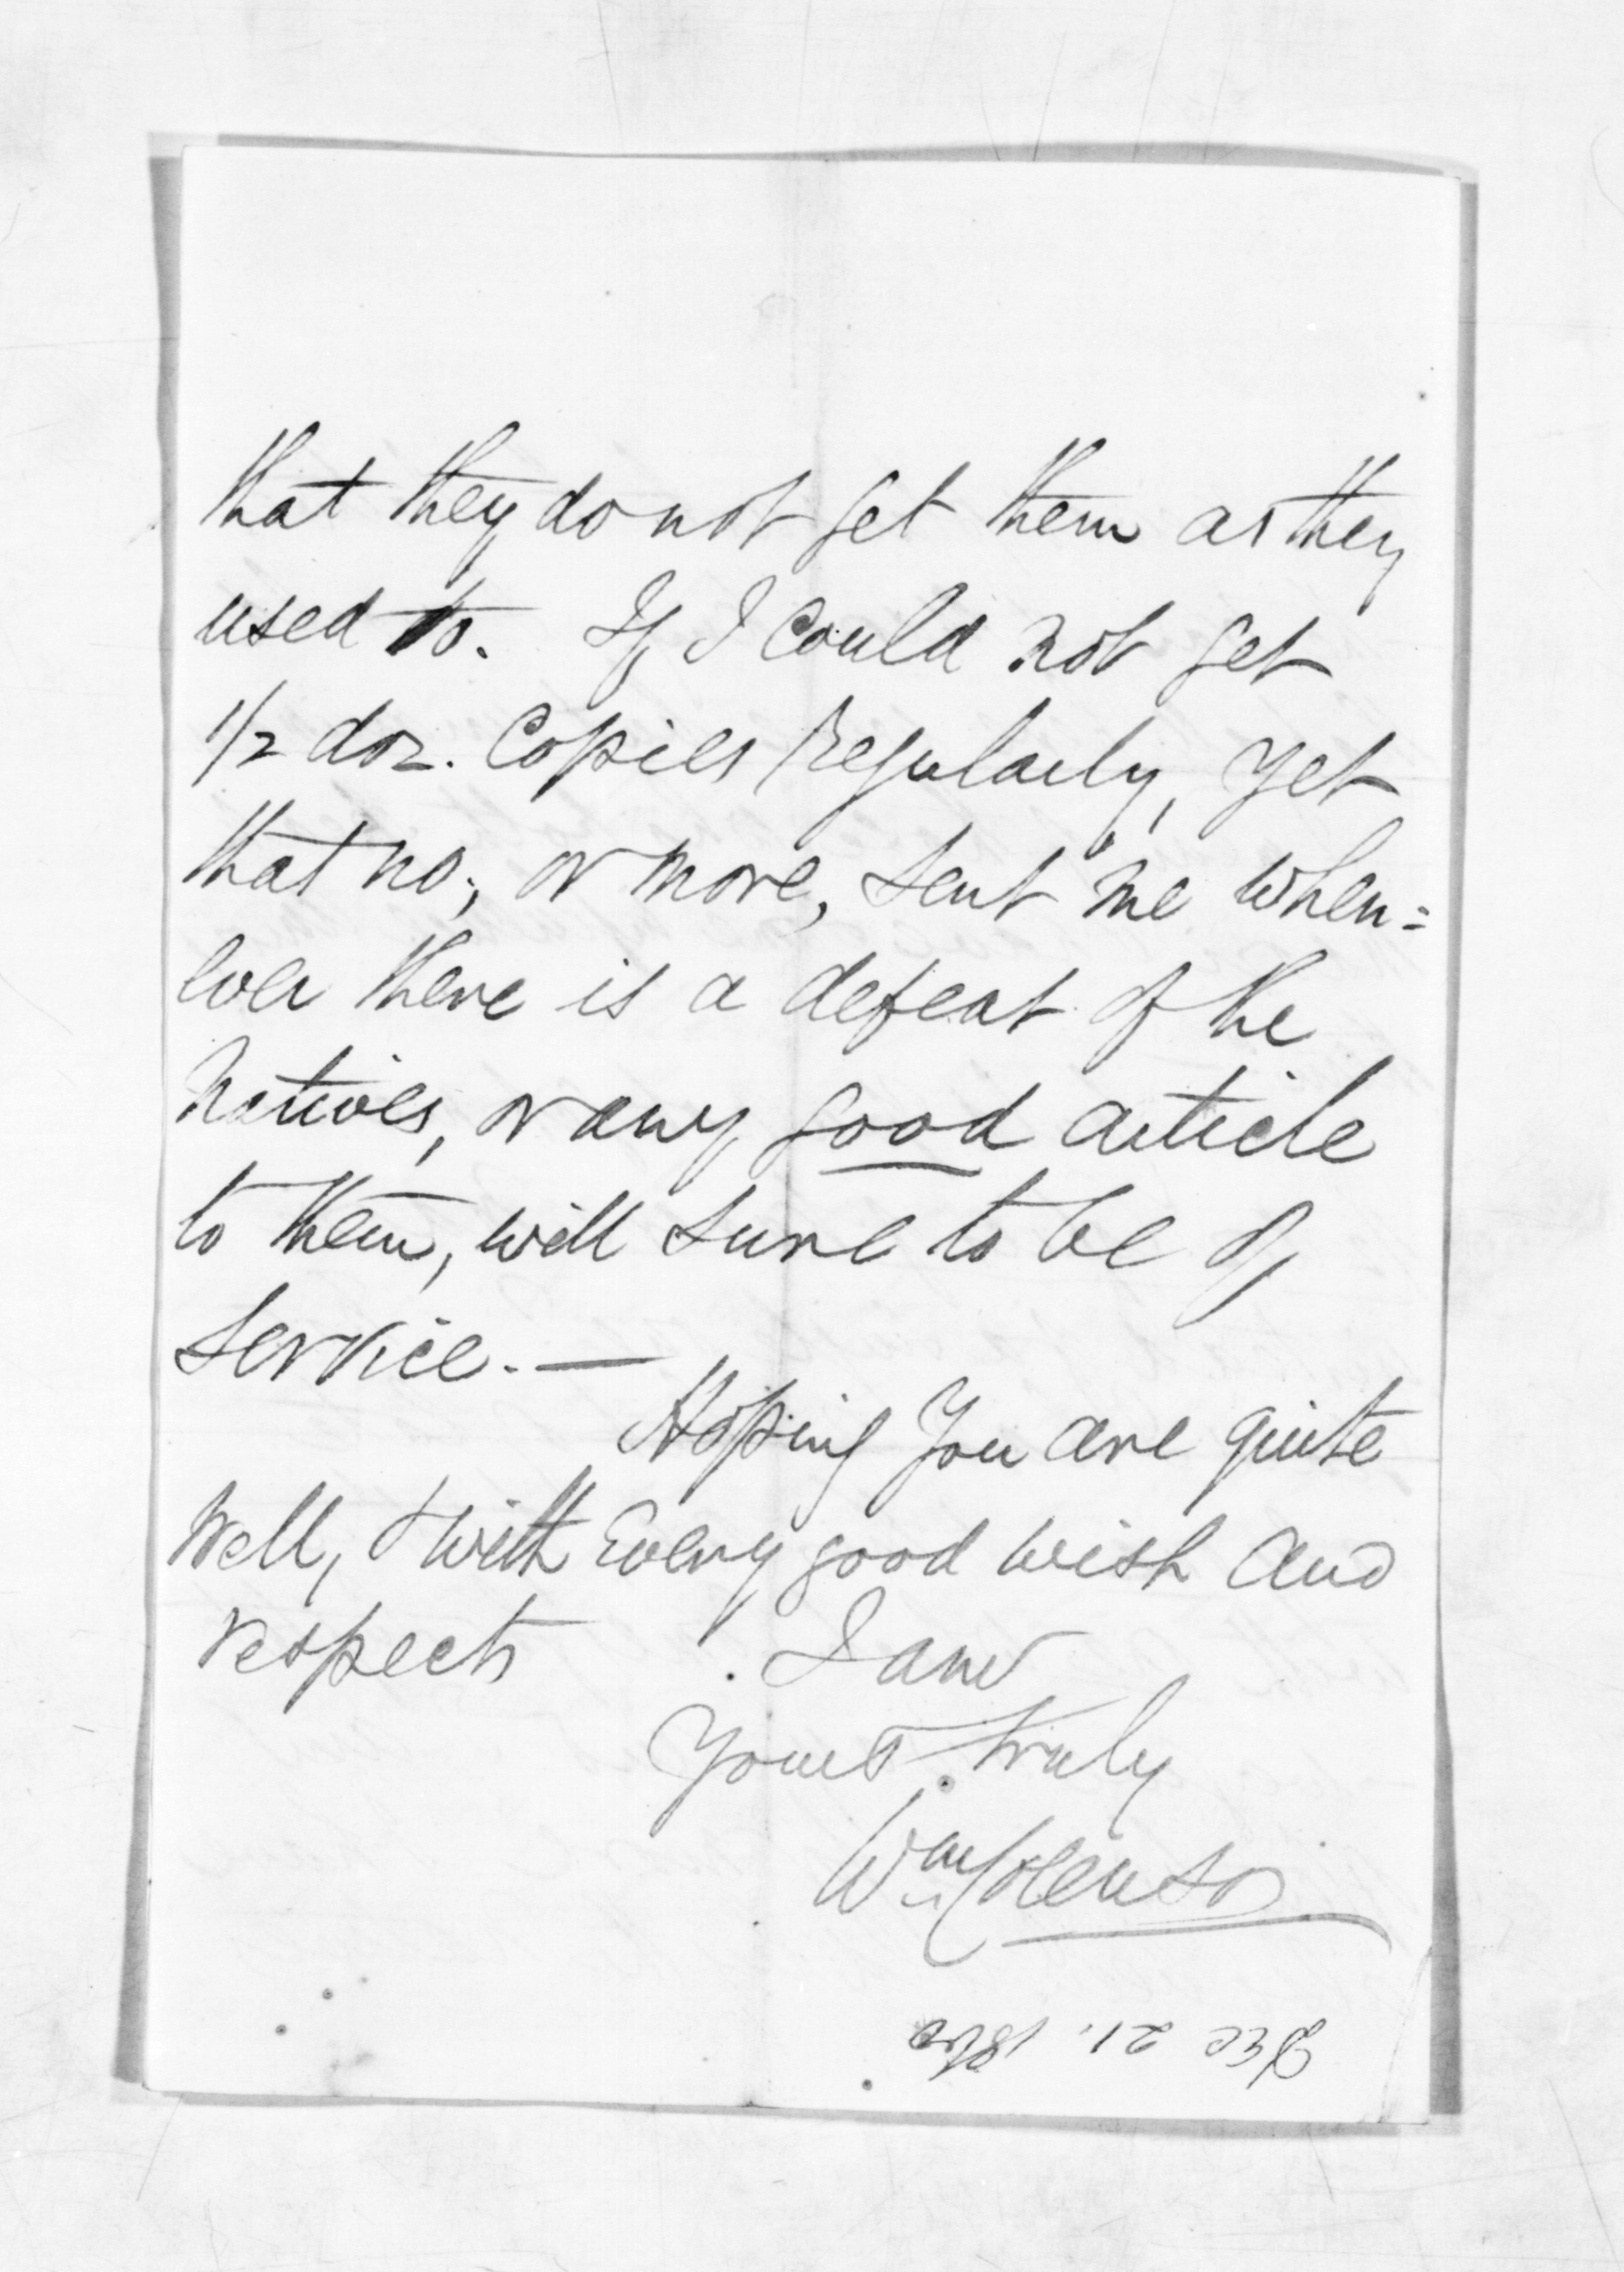 that they do not get them as they
used to. If I could not get
1/2 doz. Copies Regularly, yet
that no., or more, sent me when=
ever there is a defeat of the
Natives, or any good article
to them, will sure to be of
service. —
Hoping you are quite
well, & with Every good wish and
respects
I am
Yours truly
Wm Colenso
Dec 21. 186